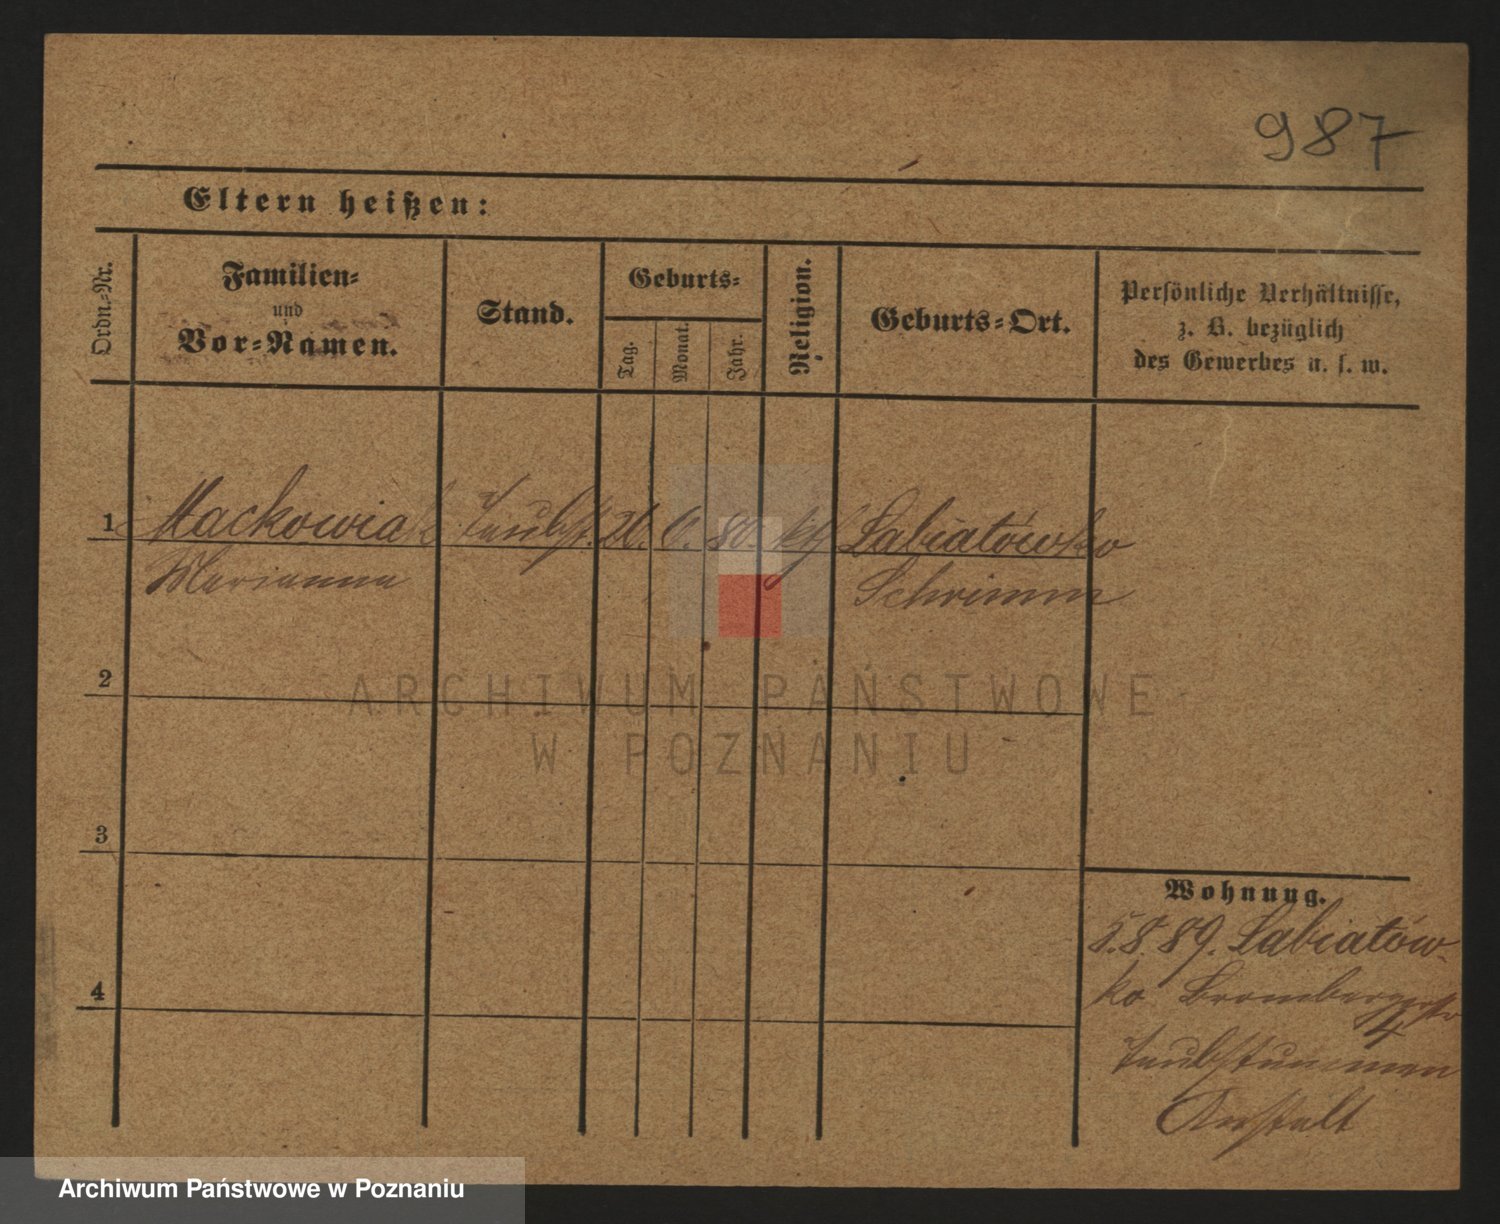 987
Eltern heißen:
Ordn.-Nr.
Familien-
und
Vor-Namen.
Stand.
Geburts-
Tag.
Monat.
Jahr.
Religion.
Geburts-Ort.
Persönliche Verhältnisse,
z. B. bezüglich
des Gewerbes u. s. w.
1 Mackowiak Taubst. 6. 80. kth Labiatówko
Marianna Schrimm
2
ARCHIWUM PAŃSTWOWE
W POZNANIU
3
Wohnung.
5.8.89. Labiatów-
ko Brombergerstr
4
4
Taubstummen
Anstalt
Archiwum Państwowe w Poznaniu